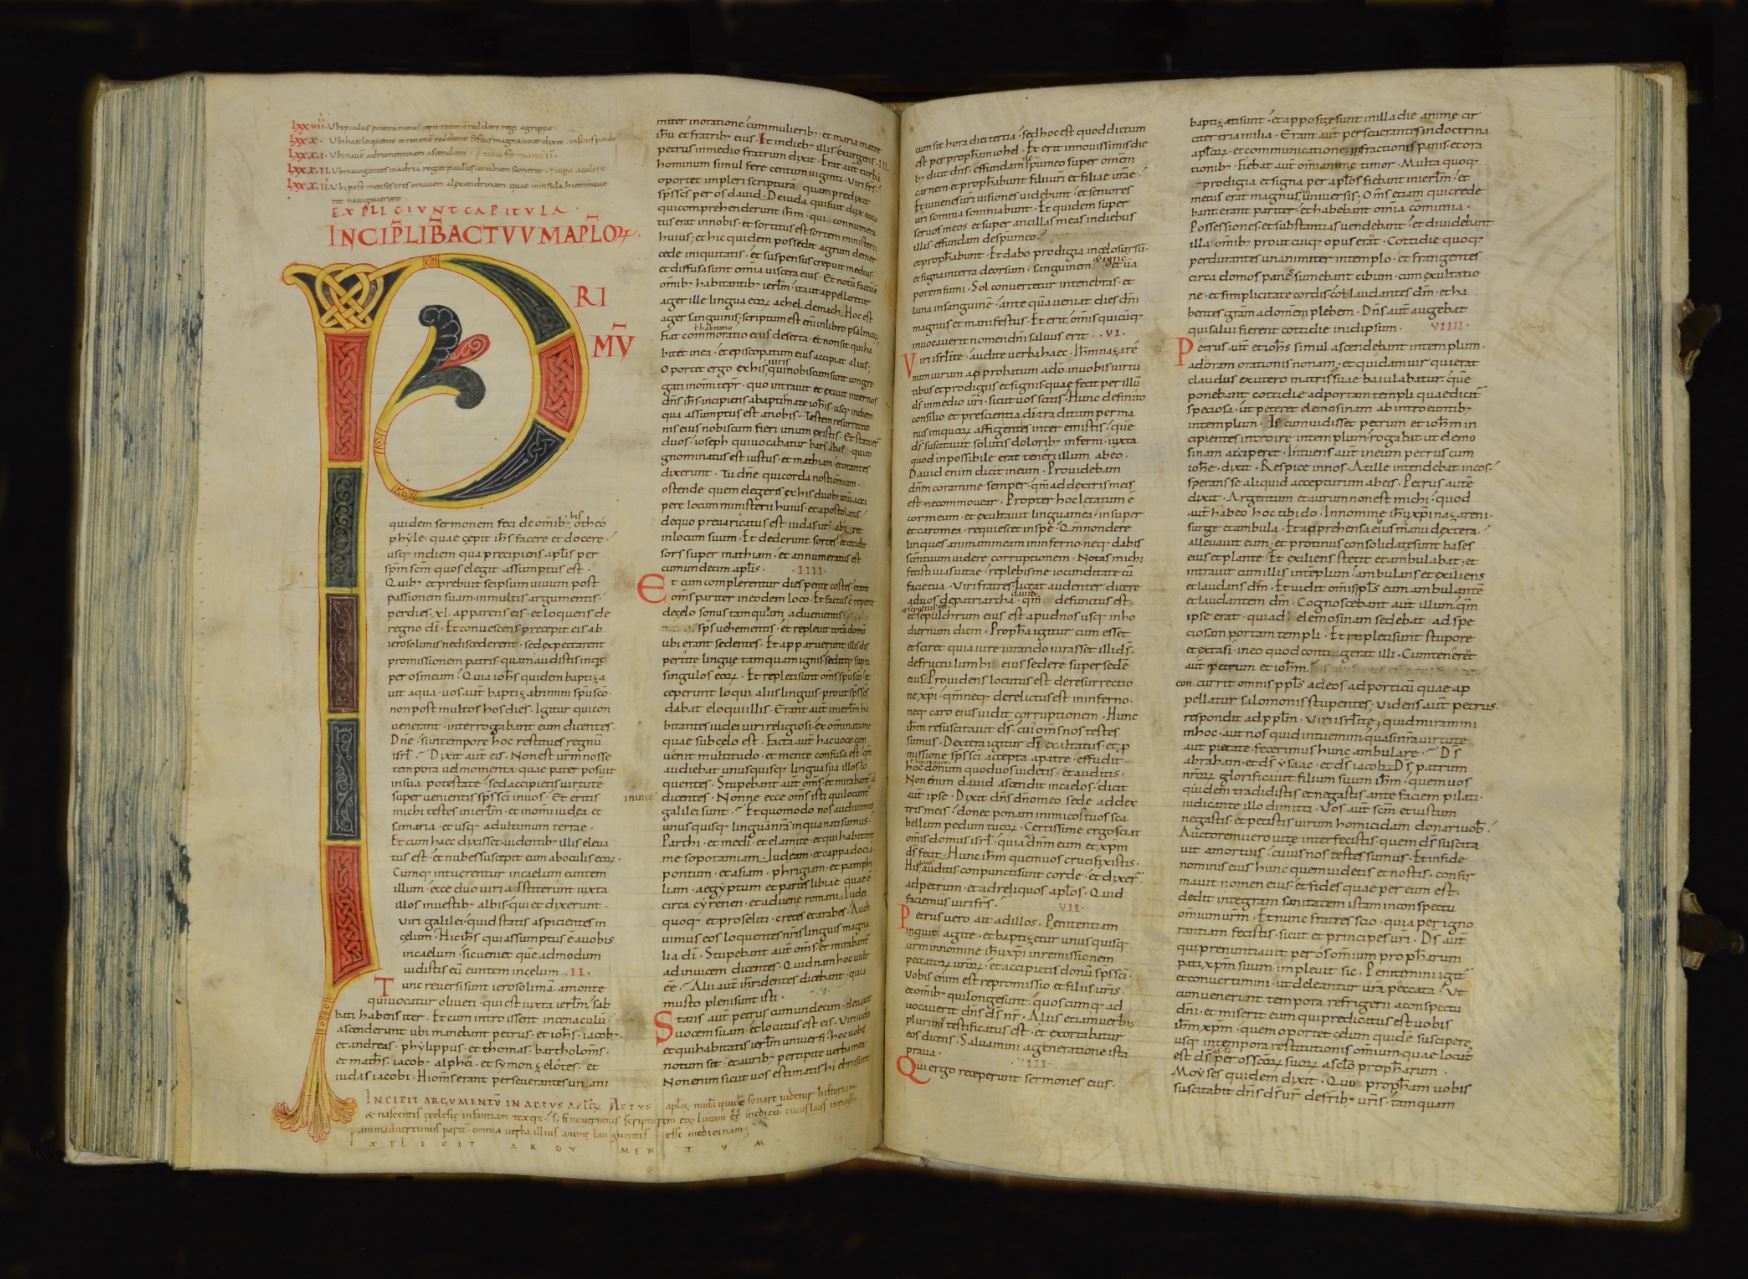 EXPLICIUNT CAPITULA
INCIP LIB ACTVVM APLOꝜ
PRI
MV̄
quidem sermonem feci de omib; his otheo
phyle · quae cępit ihs̄ facere et docere ·
usq; in diem qua precipiens aplis per
spm̄ scm̄ quos elegit assumptus est ·
Quib; et prebuit se ipsum uiuum post
passionem suam in multis argumentis ·
per dies · xl · apparens eis · et loquens de
regno dī · Et conuescens precepit eis ab
ierosolimis ne discederent · sed expectarent
promissionem patris quam audistis inqt
per os meum · Quia iohs̄ quidem baptiza
uit aqua · uos aut̄ baptizabimini spū sco
non post multos hos dies · Igitur qui con
uenerant · interrogabant eum dicentes ·
Dn̄e · si in tempore hoc restitues regnū
isrl̄ · Dixit aut̄ eis · Non est urm̄ nosse
tempora ud momenta · quae pater posuit
in sua potestate · sed accipietis uirtutē
superuenientis sps̄ scī in uos · Et eritis
michi testes in ierlm̄ · et in omi iudea et
samaria · et usq; ad ultimum terrae ·
Et cum haec dixisset · uidentib; illis eleua
tus est · et nubes suscepit eum ab oculis eoꝝ ·
Cumq; intuerentur in caelum euntem
illum · ecce duo uiri astiterunt iuxta
illos in uestib; albis · qui et dixerunt ·
Viri galilei · quid statis aspicientes in
cęlum · Hic ihs̄ qui assumptus ē a uobis
in caelum · sic ueniet que admodum
uidistis eū euntem in celum · II ·
Tunc reuersi sunt ierosolimā a monte
qui uocatur oliueti · qui est iuxta ierlm̄ · sab
bati habens iter · Et cum introissent in cenaculū ·
ascenderunt ubi manebant petrus · et iohs̄ · iacob; ·
et andreas · phylippus · et thomas · bartholoms̄ ·
et maths̄ · iacob; alphei · et symon zelotes · et
iudas iacobi · Hi oms̄ erant perseuerantes un ani
INCIPIT ARGUMENTŪ IN ACTUS APLOꝜ
miter in oratione cum mulierib; · et maria matre
ihū et fratrib; eius · Et in dieb; illis exurgens · III ·
petrus in medio fratrum dixit · Erat aut̄ turba
hominum simul fere centum uiginti · Viri frs̄
oportet impleri scripturā · quam predixit
sps̄ scs̄ per os dauid · De iuda qui fuit dux eoꝝ
qui comprehenderunt ihm̄ · qui connumera
tus erat in nobis · et sortitus est sortem ministerii
huius · et hic quidem possedit agrum de mer
cede iniquitatis · et suspensus crepuit medius ·
et diffusa sunt omīa uiscera eius · Et notū factū ē
omīb; habitantib; ierlm̄ · ita ut appellaretur
ager ille lingua eoꝝ acheldemach · Hoc est
ager sanguinis · scriptum est enī in libro psalmoꝝ
Fiat commoratio eius deserta · et non sit qui ha
bitet in ea · et episcopatum eius accipiat alius ·
Oportet ergo ex his uiris qui nobiscum sunt congre
gati in omī tepr̄ · quo intrauit et exiuit inter nos
dn̄s ihs̄ · incipiens a baptismate iohs̄ · usq; in diem
qua assumptus est a nobis · Testem resurrectio
nis eius nobiscum fieri unum ex istis · Et statuerī
duos · ioseph qui uocabatur barsabas · qui co
gnominatus est iustus · et mathiam · et orantes
dixerunt · Tu dn̄e qui corda nosti omiam ·
ostende quem elegeris ex his duob; unū acci
pere locum ministerii huius · et apostolatus ·
de quo preuaricatus est iudas ut abiret
in locum suum · Et dederunt sortes · et cecidit
sors super mathiam · et annumeratus est
cum undecim aplis · IIII ·
Et cum complerentur dies pentecostes · erant
oms̄ pariter in eodem loco · Et factus ē repente
de cęlo sonus tamquam aduenientis
sps̄ uehementis · et repleuit totā domū
ubi erant sedentes · Et apparuerunt illis dis
pertite linguę tamquam ignis · seditq; supra
singulos eoꝝ · Et repleti sunt oms̄ spū sco · et
ceperunt loqui aliis linguis prout sps̄ scs̄
dabat eloqui illis · Erant aut̄ in ierlm̄ ha
bitantes iudei uiri religiosi · ex omī natione
quae sub celo est · Facta aut̄ hac uoce · con
uenit multitudo · et mente confusa est · qm̄
audiebat unusquisq; lingua sua illos lo
quentes · Stupebant aut̄ oms̄ · et mirabant
dicentes · Nonne ecce oms̄ isti qui locuntur
galilei sunt · Et quomodo nos audiuimus
unusquisq; linguā nrā in qua nati sumus ·
Parthi · et medi · et elamitę · et qui habitant
mesopotamiam · Iudeam · et cappadociā
pontum · et asiam · phrigiam · et pamphi
liam · aegyptum · et partes libiae quae ē
circa cyrenen · et aduenę romani · iudei
quoq; et proseliti · cretes · et arabes · Audi
uimus eos loquentes nr̄is linguis magna
lia dī · Stupebant aut̄ oms̄ et mirabantr̄
ad inuicem dicentes · Quid nam hoc uult
eē · Alii aut̄ inridentes dicebant · quia
musto pleni sunt isti · V ·
Stans aut̄ petrus cum undecim · eleuauit
uocem suam · et locutus est eis · Viri iudei
et qui habitatis ierlm̄ uniuersi · hoc uobis
notum sit · et aurib; percipite uerba mea ·
Non enim sicut uos estimatis hi ebrii sunt
EXPLICIT ARGUMENTUM
cum sit hora diei tertia · sed hoc est quod dictum
est per propham̄ iohel · Et erit in nouissimis die
b; dicit dn̄s · effundam de spū meo super omem
carnem · et prophabunt filii uri et filiae urae ·
Et iuuenes uri uisiones uidebunt · et seniores
uri somnia somniabunt · Et quidem super
seruos meos et super ancillas meas in diebus
illis effundam de spū meo ·
et prophabunt · Et dabo prodigia in cęlo sursū ·
et signa in terra deorsum · sanguinem et ignē et ua
porem fumi · Sol conuertetur in tenebras · et
luna in sanguinē · ante quā ueniat dies dn̄i
magnus et manifestus · Et erit omīs quicūq;
inuocauerit nomen dn̄i saluus erit · VI ·
Viri isrl̄ite · audite uerba haec · Ihm̄ nazare
num uirum approbatum a dō in uobis uirtu
tibus et prodigiis et signis quae fecit per illū
ds̄ in medio uri · sicut uos scitis · Hunc definito
consilio et prescientia dī traditum per ma
nus iniquoꝝ affigentes interemistis · quē
ds̄ suscitauit solutis dolorib; inferni · iuxta
quod inpossibile erat teneri illum ab eo ·
Dauid enim dicit in eum · Prouidebam
dn̄m coram me semper · qm̄ a dextris meis
est ne commouear · Propter hoc letatum ē
cor meum · et exultauit lingua mea · insuper
et caro mea · requiescet in spe · Qm̄ non dere
linques animam meam in inferno · neq; dabis
scm̄ tuum uidere corruptionem · Notas michi
fecisti uias uitae · replebis me iocunditate cū
facie tua · Viri fratres liceat audenter dicere
ad uos de patriarcha dauid · qm̄ defunctus est
et sepulchrum eius est apud nos usq; in ho
diernum diem · Propha igitur cum esset
et sciret quia iure iurando iurasset illi ds̄ ·
de fructu lumbi eius sedere super sedē
eius · Prouidens locutus est de resurrectio
ne xpī · qm̄ neq; derelictus est in inferno ·
neq; caro eius uidit corruptionem · Hunc
ihm̄ resuscitauit ds̄ · cui oms̄ nos testes
sumus · Dextera igitur dī exaltatus · et p
missione sps̄ scī accepta a patre · effudit
hoc donum quod uos uidetis · et auditis ·
Non enim dauid ascendit in caelos · dicit
aut̄ ipse · Dixit dn̄s dn̄o meo sede a dex
tris meis · donec ponam inimicos tuos sca
bellum pedum tuoꝝ · Certissime ergo sciat
omīs domus isrl̄ · quia dn̄m eum et xpm̄
ds̄ fecit · Hunc ihm̄ quem uos crucifixistis ·
His auditis conpuncti sunt corde · et dixerī
ad petrum · et ad reliquos aplos · Quid
faciemus uiri frs̄ · VII ·
Petrus uero ait ad illos · Penitentiam
inquit agite · et baptizetur unus quisq;
urm in nomine ihū xpī in remissionem
peccatoꝝ uroꝝ · et accipietis donū sps̄ scī ·
Vobis enim est repromissio et filiis uris ·
et omīb; qui longe sunt · quos cumq; ad
uocauerit dn̄s ds̄ nr̄ · Aliis etiam uerbis
plurimis testificatus est · et exortabatur
eos dicens · Saluamini a generatione ista
praua · VIII ·
Qui ergo receperunt sermones eius ·
baptizati sunt · et appositę sunt in illa die animę cir
citer tria milia · Erant aut̄ perseuerantes in doctrina
aploꝝ · et communicatione in fractionis panis · et ora
tionib; · Fiebat aut̄ omī animę timor · Multa quoq;
prodigia et signa per aplos fiebant in ierlm̄ · et
metus erat magnus in uniuersis · Oms̄ etiam qui crede
bant erant pariter · et habebant omīa cōmunia ·
Possessiones et substantias uendebant · et diuidebant
illa omīb; prout cuiq; opus erat · Cotidie quoq;
perdurantes unanimiter in templo · et frangentes
circa domos panē · sumebant cibum · cum exultatio
ne · et simplicitate cordis · collaudantes dm̄ · et ha
bentes gram ad omem plebem · Dn̄s aut̄ augebat
qui salui fierent cottidie in id ipsum · VIIII ·
Petrus aut̄ et iohs̄ simul ascendebant in templum ·
ad oram orationis nonam · et quidam uir qui erat
claudus ex utero matris suae baiulabatur · quē
ponebant cottidie ad portam templi quae dicit̄
speciosa · ut peteret elemosinam ab introeuntib;
in templum · Is cum uidisset petrum et iohm̄ in
cipientes introire in templum · rogabat ut elemo
sinam acciperet · Intuens aut̄ in eum petrus cum
iohe · dixit · Respice in nos · At ille intendebat in eos ·
sperans se aliquid accepturum ab eis · Petrus autē
dixit · Argentum et aurum non est michi · quod
aut̄ habeo hoc tibi do · In nomine ihū xpī nazareni ·
surge et ambula · Et apprehensa eius manu dextera ·
alleuauit eum · et protinus consolidatę sunt bases
eius et plantę · Et exiliens stetit et ambulabat · et
intrauit cum illis in templum · ambulans et exiliens
et laudans dm̄ · Et uidit omīs ppls̄ eum ambulantē
et laudantem dm̄ · Cognoscebant aut̄ illum · qm̄
ipse erat · qui ad elemosinam sedebat · ad spe
ciosam portam templi · Et repleti sunt stupore
et extasi · in eo quod contigerat illi · Cum teneret
aut̄ petrum et iohm̄ ·
concurrit omnis ppls̄ ad eos ad porticū quae ap
pellatur salomonis stupentes · Videns aut̄ petrus ·
respondit ad pplm̄ · Viri isrl̄ite · quid miramini
in hoc · aut nos quid intuemini · quasi nr̄a uirtute
aut pietate fecerimus hunc ambulare · Ds̄
abraham · et ds̄ ysaac · et ds̄ iacob · Ds̄ patrum
nr̄oꝝ glorificauit filium suum ihm̄ · quem uos
quidem tradidistis et negastis ante faciem pilati ·
iudicante illo dimitti · Vos aut̄ scm̄ et iustum
negastis · et petistis uirum homicidam donari uob; ·
Auctorem uero uitę interfecistis · quem ds̄ suscita
uit a mortuis · cuius nos testes sumus · Et in fide
nominis eius hunc quem uidetis et nostis · confir
mauit nomen eius · et fides quae per eum est ·
dedit integram sanitatem istam in conspectu
omium urm · Et nunc fratres scio · quia per igno
rantiam fecistis · sicut et principes uri · Ds̄ aut̄
qui prenuntiauit per os omium propharum
pati xpm̄ suum impleuit sic · Penitemini igit̄
et conuertimini · ut deleantur ura peccata · Ut
cum uenerint tempora refrigerii a conspectu
dn̄i · et miserit eum qui predicatus est uobis
ihm̄ xpm̄ · quem oportet celum quidē suscipere
usq; in tempora restitutionis omium · quae locut
est ds̄ per os scoꝝ suoꝝ a sclo propharum ·
Moyses quidem dixit · Quo propham uobis
suscitabit dn̄s ds̄ ur̄ · de frīb; uris · tamquam